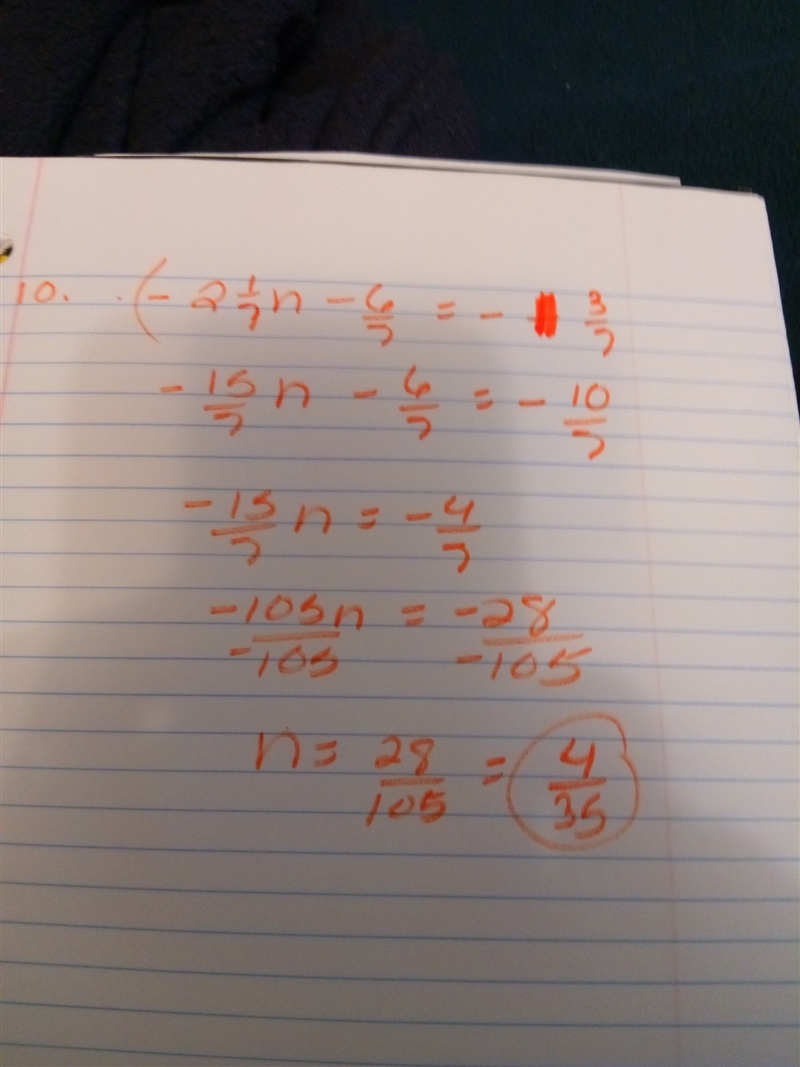 10. (- 2 1/7 n - 6/7 = - 3/7
- 15/7 n - 6/7 = - 10/7
- 15/7 n = - 4/7
-105n/-105 = -28/-105
n = 28/105 = 4/35